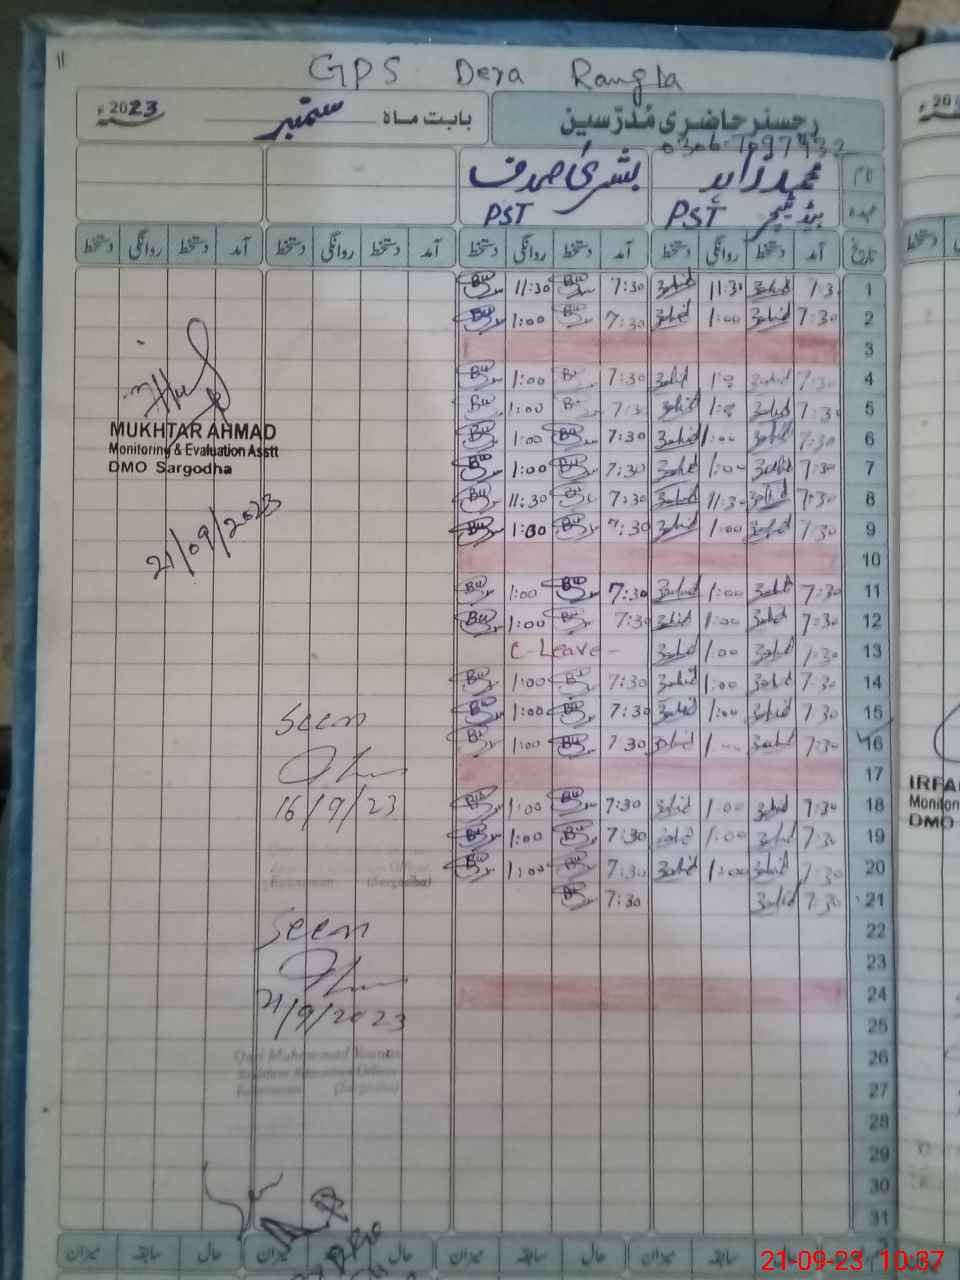 11
GPS Dera Rangla
رجسٹر حاضری مُدرّسین
بابت ماہ ستمبر 2023ء
0306-7097932
نام محمد زاہد بشریٰ صدف
عہدہ ہیڈ ٹیچر PST PST
تاریخ آمد دستخط روانگی دستخط آمد دستخط روانگی دستخط آمد دستخط روانگی دستخط آمد دستخط روانگی دستخط
1 7:30 Zahid 11:30 Zahid 7:30 11:30
2 7:30 Zahid 1:00 Zahid 7:30 1:00
3
4 7:30 Zahid 1:00 Zahid 7:30 1:00
5 7:30 Zahid 1:00 Zahid 7:30 1:00
6 7:30 Zahid 1:00 Zahid 7:30 1:00
7 7:30 Zahid 1:00 Zahid 7:30 1:00
8 7:30 Zahid 11:30 Zahid 7:30 11:30
9 7:30 Zahid 1:00 Zahid 7:30 1:00
10
11 7:30 Zahid 1:00 Zahid 7:30 1:00
12 7:30 Zahid 1:00 Zahid 7:30 1:00
13 7:30 Zahid 1:00 Zahid C-Leave-
14 7:30 Zahid 1:00 Zahid 7:30 1:00
15 7:30 Zahid 1:00 Zahid 7:30 1:00
16 7:30 Zahid 1:00 Zahid 7:30 1:00
17
18 7:30 Zahid 1:00 Zahid 7:30 1:00
19 7:30 Zahid 1:00 Zahid 7:30 1:00
20 7:30 Zahid 1:00 Zahid 7:30 1:00
21 7:30 Zahid 7:30
22
23
24
25
26
27
28
29
30
31
MUKHTAR AHMAD
Monitoring & Evaluation Asstt
DMO Sargodha
21/09/2023
Seen
16/9/23
(Sargodha)
Seen
21/9/2023
Qari Muhammad
Assistant Education Officer
(Sargodha)
میزان سابقہ حال میزان سابقہ حال میزان سابقہ حال میزان سابقہ حال
IRFA
Monitor
DMO
21-09-23 10:37